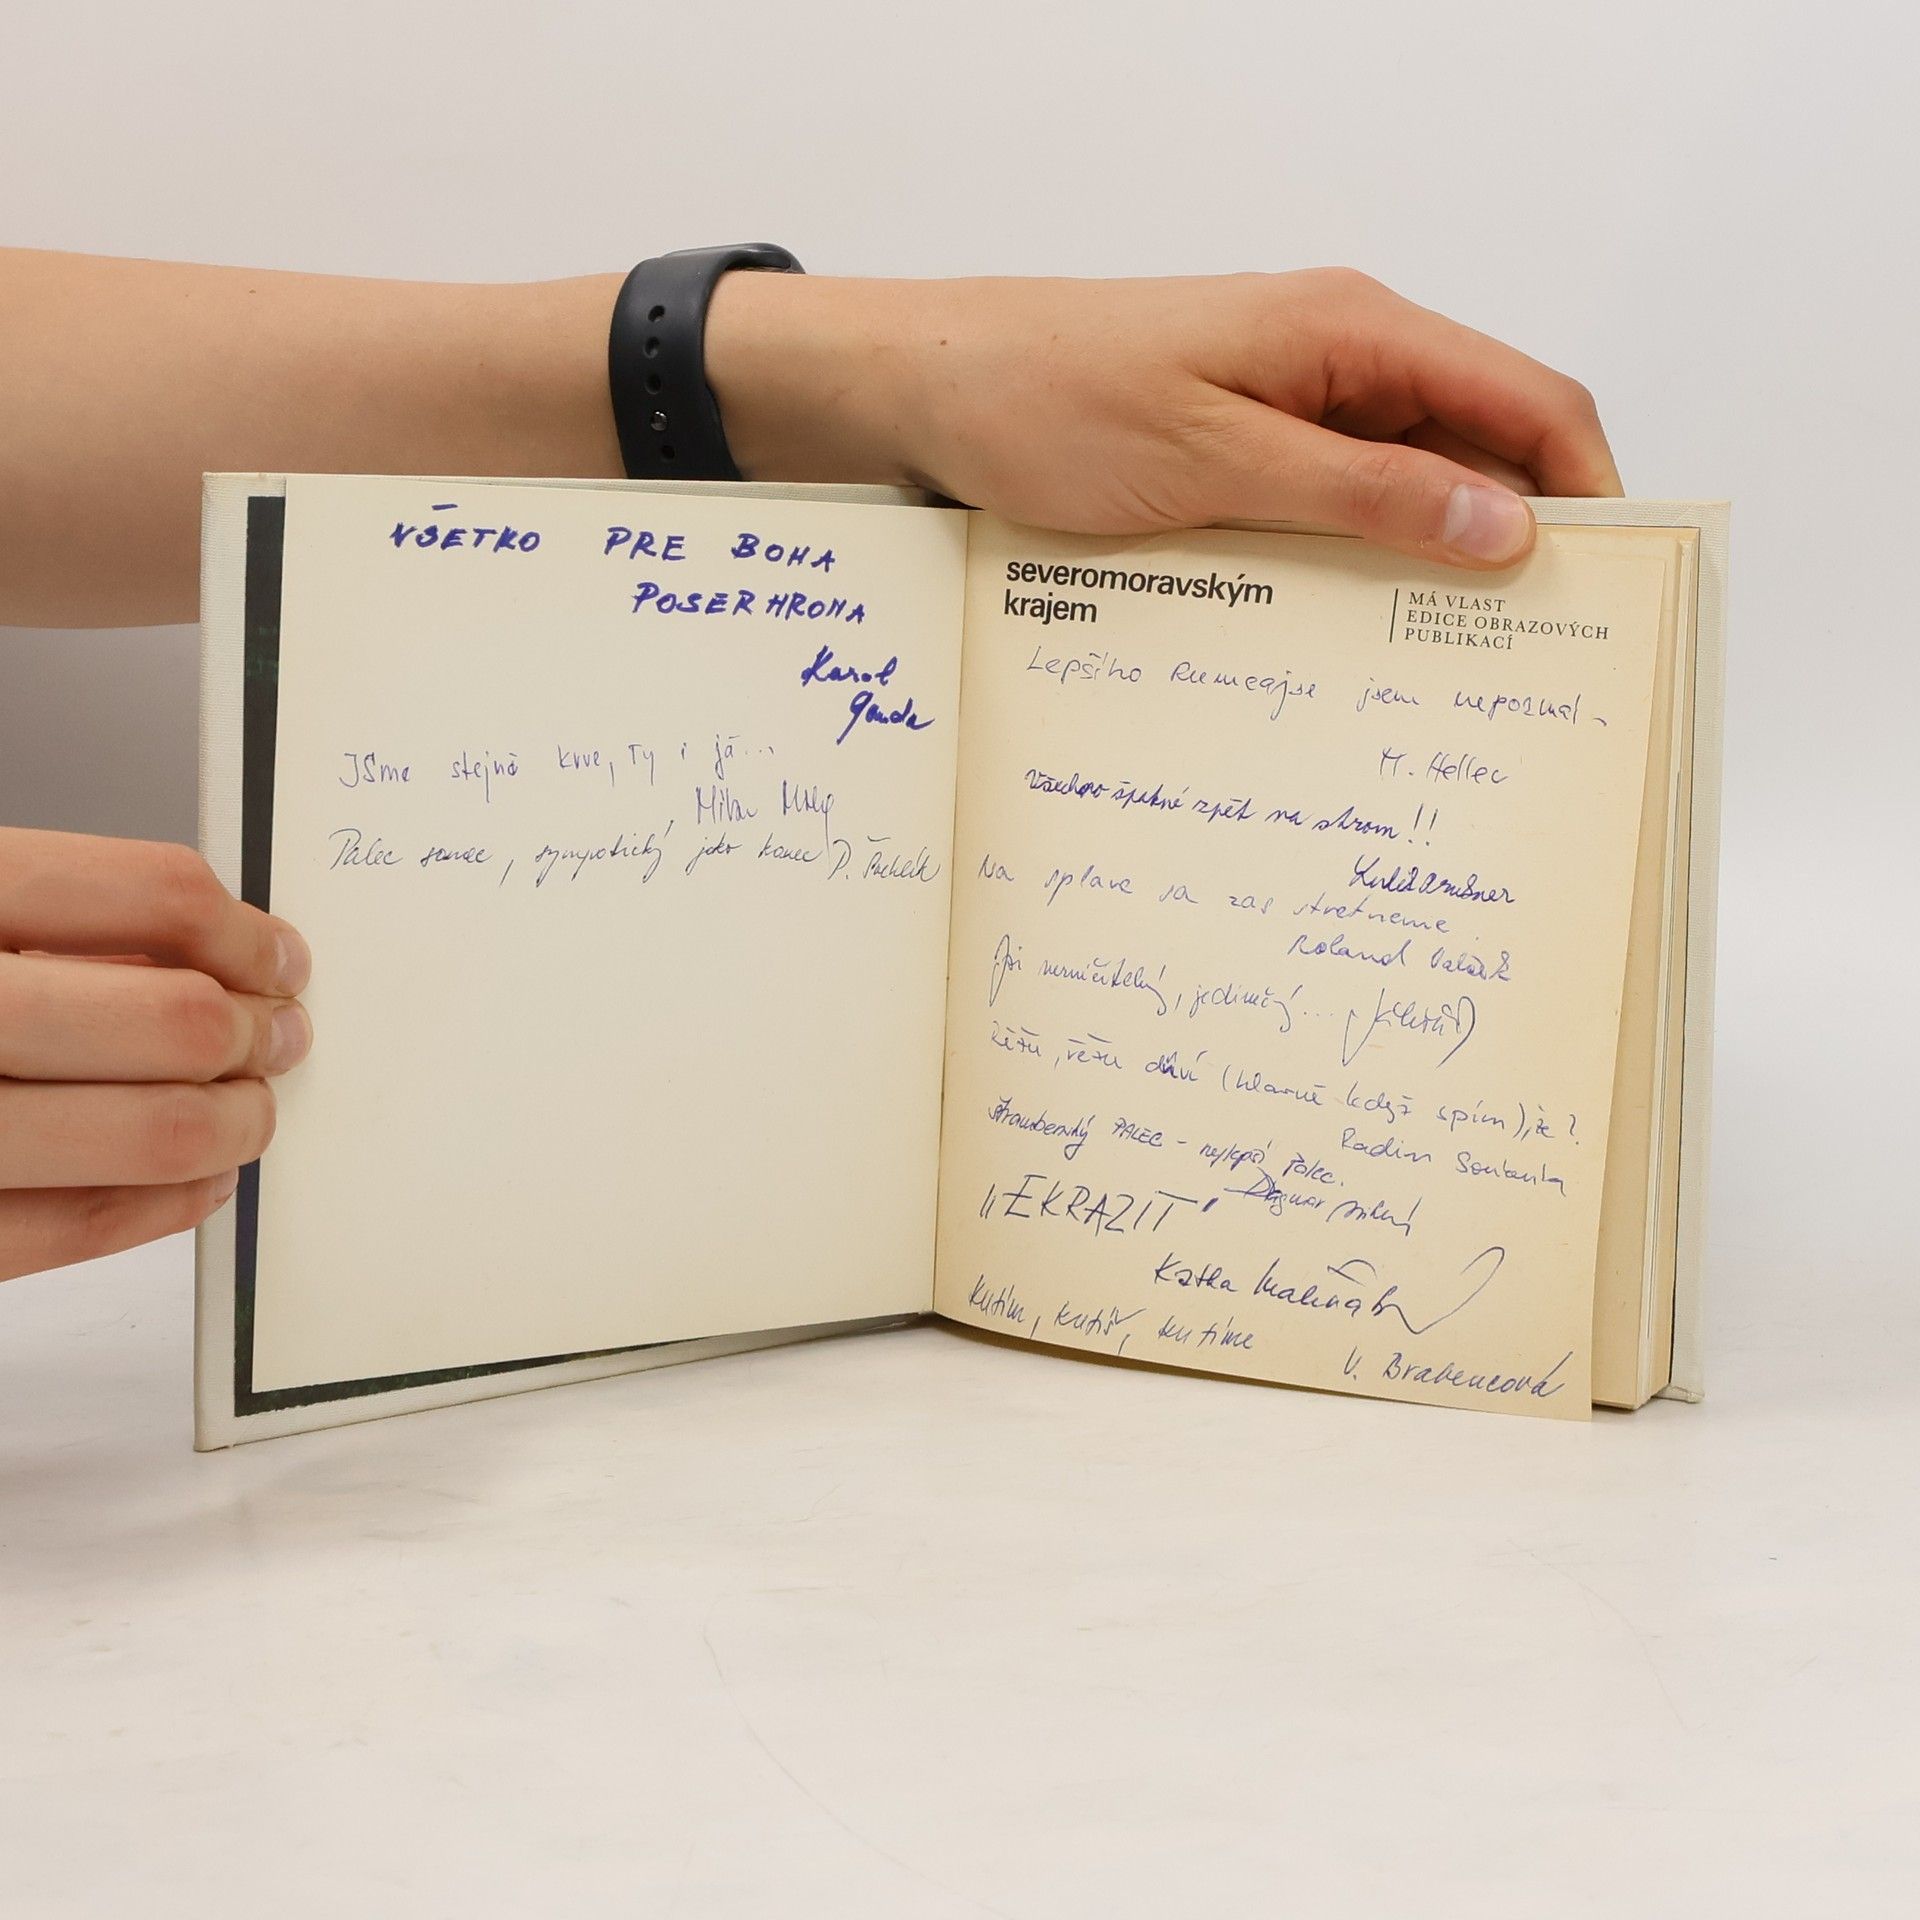 VŠETKO PRE BOHA
POSERHROMA
Karol
Ganda
JSme stejné krve, Ty i já...
Milan
Palec, sympatický jako konec P.
severomoravským
krajem
MÁ VLAST
EDICE OBRAZOVÝCH
PUBLIKACÍ
Lepšího Rumcajse jsem nepoznal -
M. Heller
Všechno špatné zpět na strom!!
Na splave sa zas stretneme
Roland Valášik
Jsi nezničitelný, jedinečný...
Řežu, řežu dříví (hlavně když spím), že?
Radim
Štramberský PALEC - nejlepší Palec.
Dagmar
„EKRAZIT"
Katka
Kutím, kutíš, kutíme
V. Brabencová